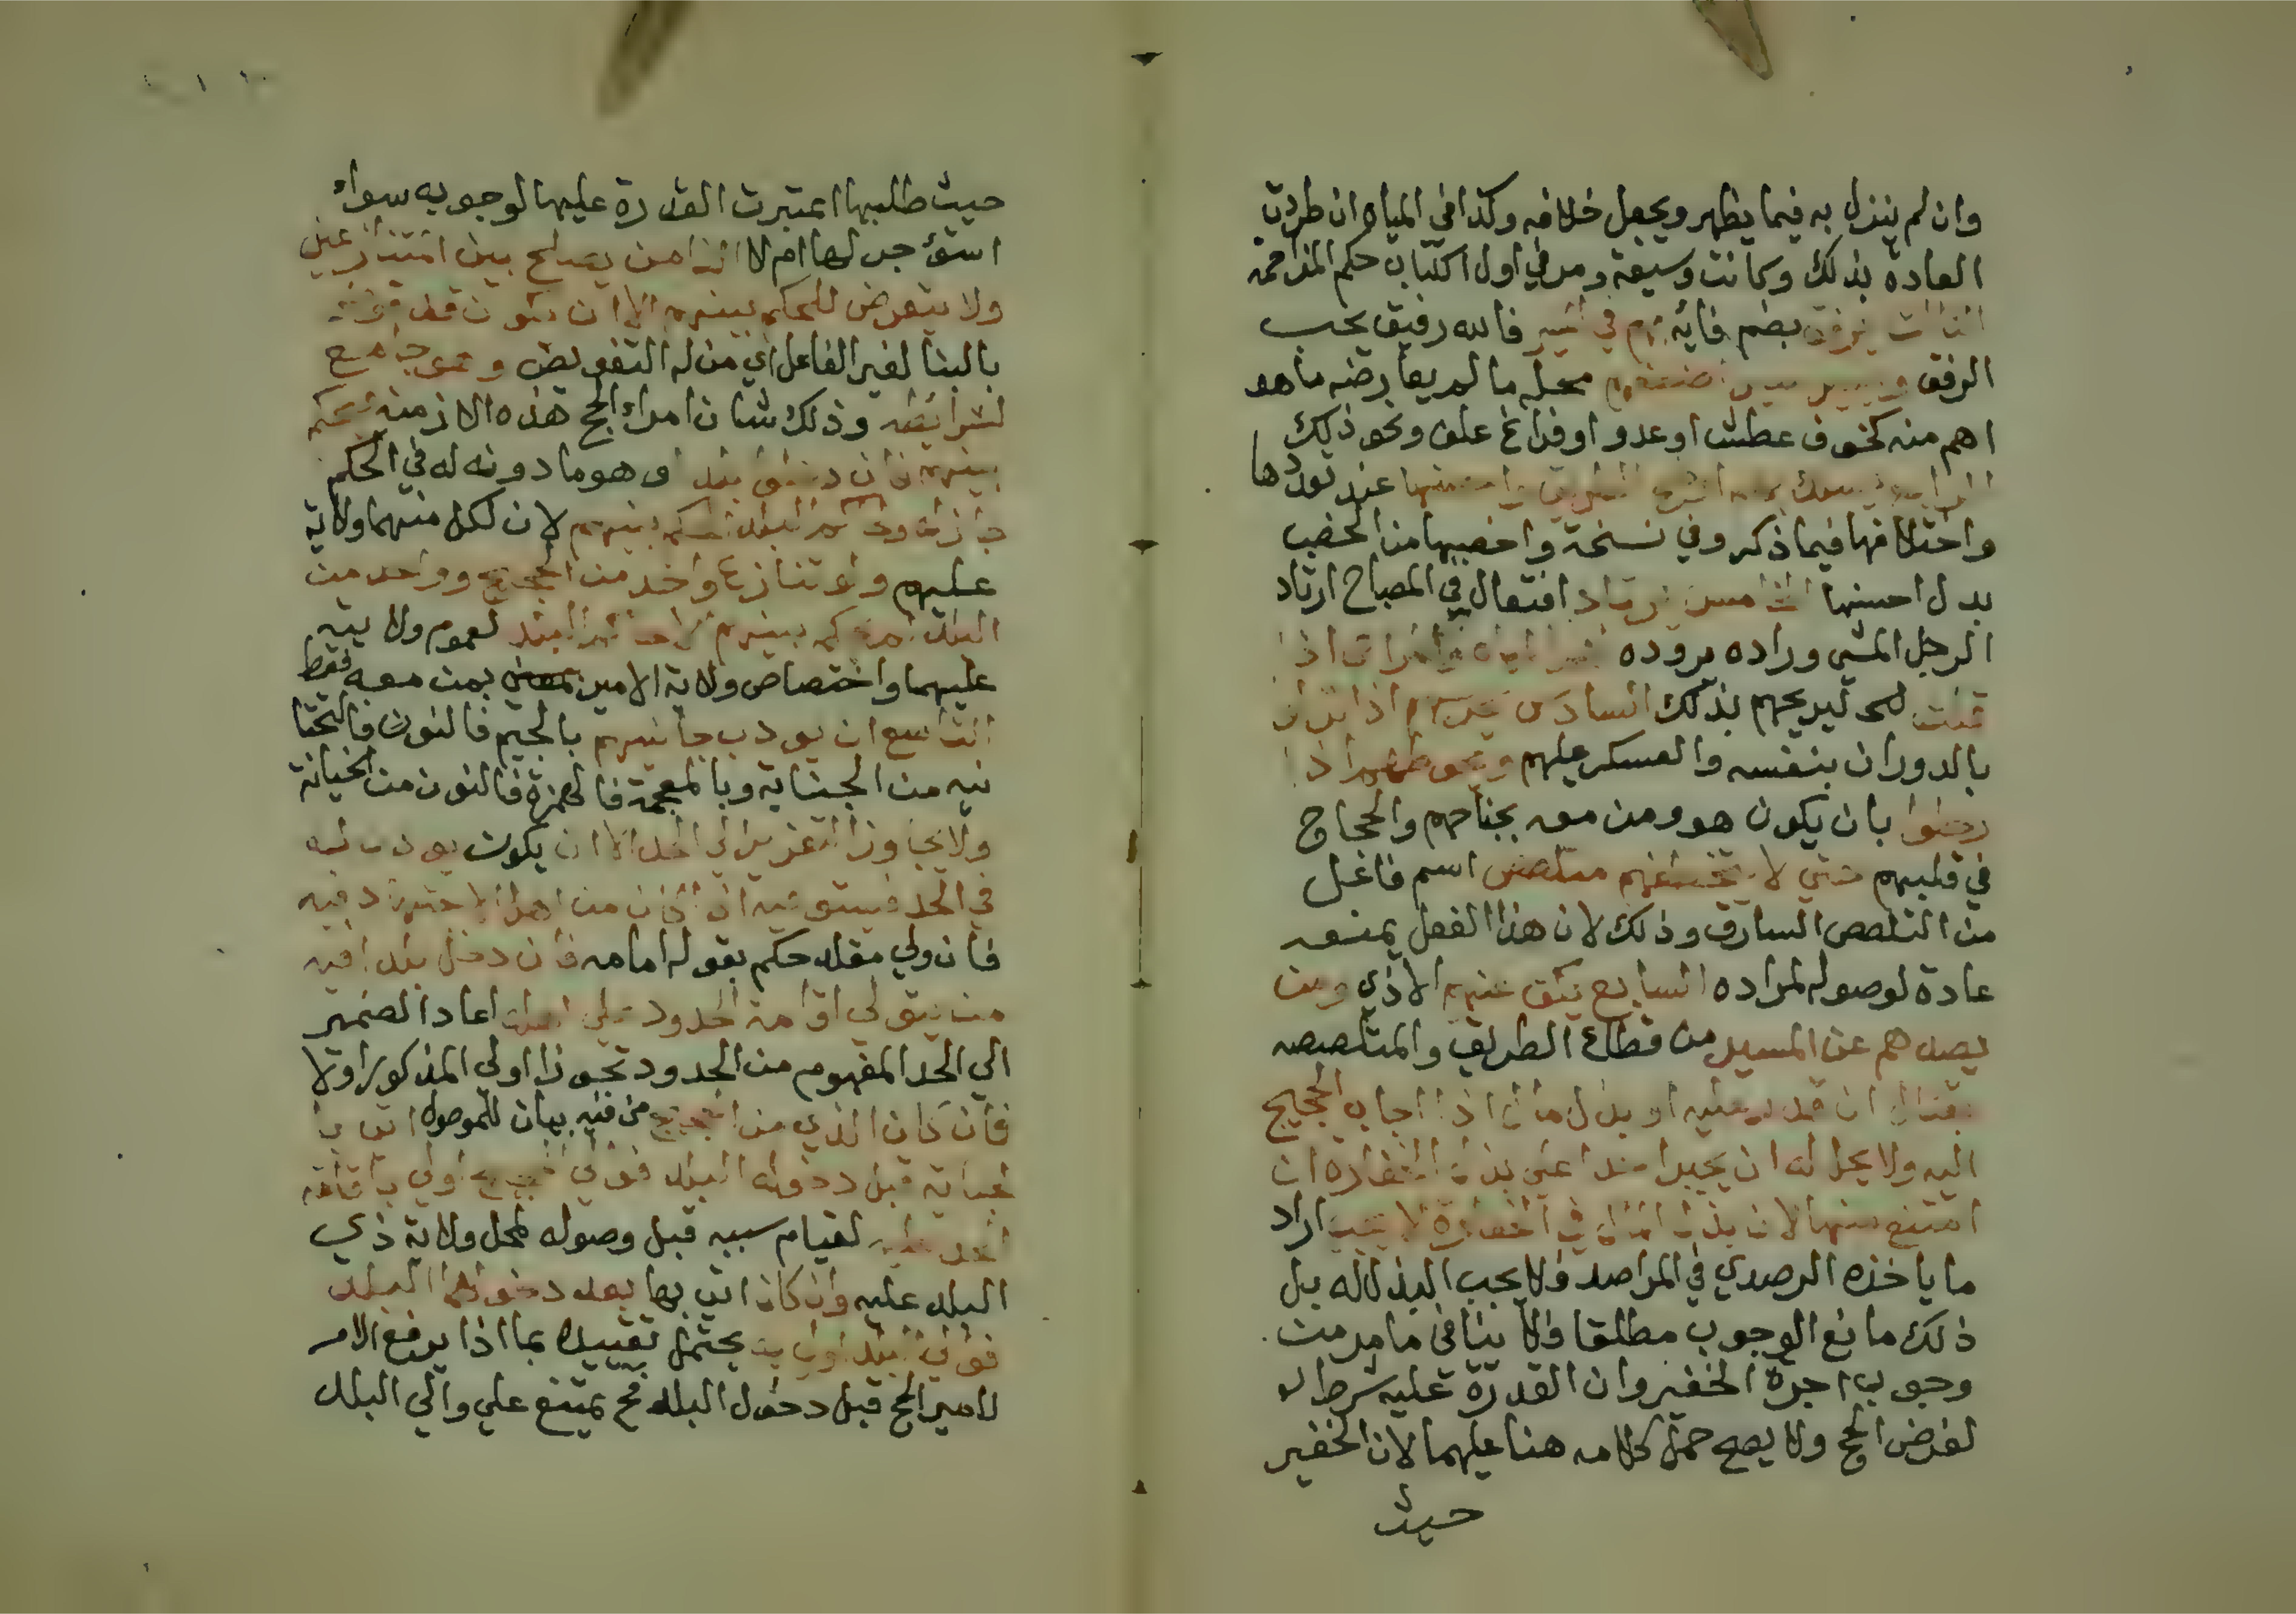 وان لم ينزل به فيما يظهر ويجعل خلافه وكذا في المياه ان طردت
العادة بذلك وكانت وسيعة ومر في اول الكتاب حكم المزاحمه
الثالث يرفق بضم فائه بهم في السير فالله رفيق يحب
الرفق ويسير سير اضعفهم محله ما لم يعارضه ما هو
اهم منه كخوف عطش او عدو او فراغ علف ونحو ذلك
الرابع يسلك بهم اوضح الطريق واحسنها عند تعددها
واختلافها فيما ذكر وفي نسخة واخصبها من الخصب
بدل احسنها الخامس يرتاد افتعال في المصباح ارتاد
الرجل الشي وراده يروده لهم المياه والمراعي اذا
قلت لهم ليريحهم بذلك السادس يحرسهم اذا نزلوا
بالدوران بنفسه والعسكر عليهم ويحوطهم اذا
رحلوا بان يكون هو ومن معه بجناحهم والحجاج
في قلبهم حتي لا يتخطفهم متلصص اسم فاعل
من التلصص السارق وذلك لان هذا الفعل يمنعه
عادة لوصوله لمراده السابع يكف عنهم الاذي ومن
يصدهم عن المسير من قطاع الطريق والمتلصصه
بقتال ان قدر عليه او بذل مال اذا اجاب الحجيج
اليه ولا يحل له ان يجبر احدا علي بذل الخفاره ان
امتنع منها لان بذل المال في الخفارة لا يجب اراد
ما ياخذه الرصدي في المراصد فلا يجب البذل له بل
ذلك مانع الوجوب مطلقا فلا ينافي ما مر من
وجوب اجرة الخفير وان القدرة عليه شرط لو
لفرض الحج ولا يصح حمل كلامه هنا عليهما لان الخفير
حيث
حيث طلبها اعتبرت القدرة عليها لوجوبه سواء
استؤجر لها ام لا الثامن يصلح بين المتنازعين
ولا يتعرض للحكم بينهم الا ان يكون قد فوض
بالبنا لغير الفاعل اي من له التفويض وهو جامع
لشرائطه وذلك شان امراء الحج هذه الازمنه فيحكم
بينهم فان دخلوا بلدا وهو ما دونه له في الحكم
جاز له وحاكم البلد الحكم بينهم لان لكل منهما ولاية
عليهم ولو تنازع واحد من الحجيج وواحد من
البلد لم يحكم بينهم الا حاكم البلد لعموم ولايته
عليهما واختصاص ولاية الامير بمن معه فقط
التاسع ان يودب جانيهم بالجيم فالنون فالتحتا
نيه من الجناية وبالمعجمة فالهمزة فالنون من الخيانة
ولا يجاوز التعزير الي الحد الا ان يكون يوذن له
في الحد فيستوفيه اذا كان من اهل الاجتهاد فيه
فان ولي مقلد حكم بقول امامه فان دخل بلدا فيه
من يتولي اقامة الحدود علي اهله اعاد الضمير
الي الحد المفهوم من الحدود تجوزا او لي المذكور اولا
فان كان الذي من الحجيج من فيه بيان للموصول اتي با
لجناية قبل دخوله البلد فوالي الحجيج اولي باقامة
الحد عليه لقيام سببه قبل وصوله لمحل ولاية ذي
البلد عليه وان كان اتي بها بعد دخولهم البلد
فوالي البلد اولي به يحتمل تقييده بما اذا لم يرفع الامر
لامير الحج قبل دخول البلد فح يمتنع علي والي البلد